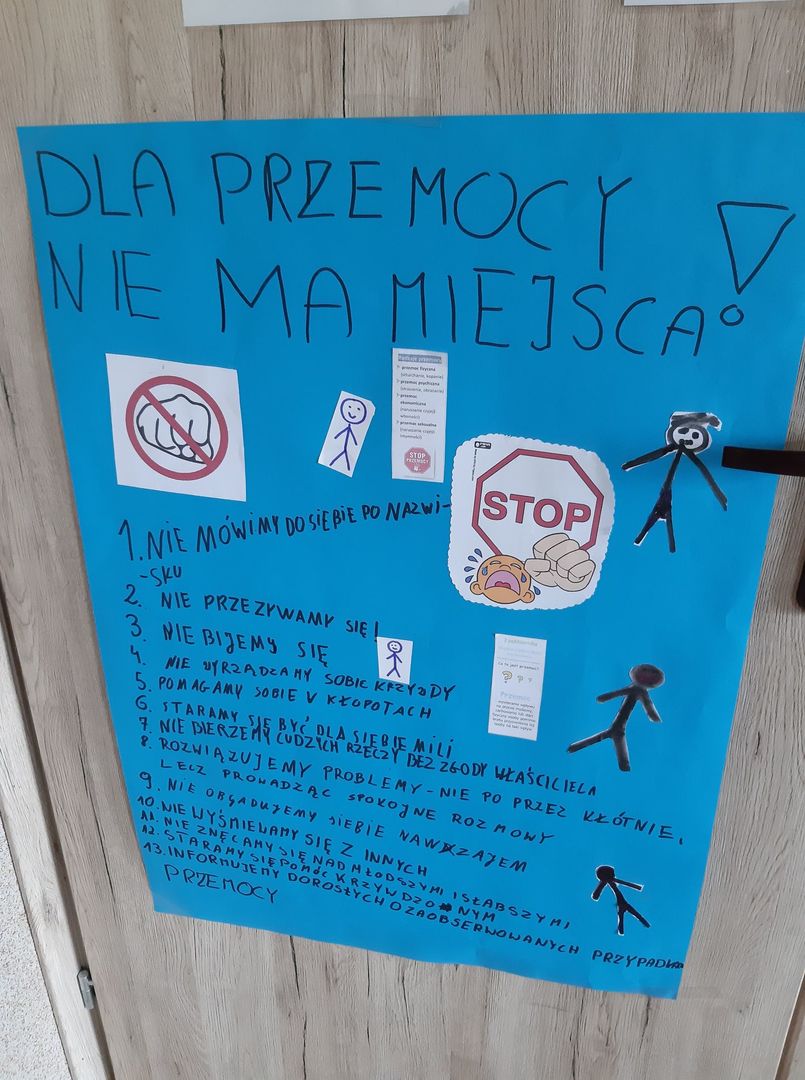 DLA PRZEMOCY
NIE MA MIEJSCA!
Rodzaje przemocy
przemoc fizyczna
(szturchanie, kopanie)
przemoc psychiczna
(straszenie, obrażanie)
przemoc
ekonomiczna
(naruszanie czyjejś
własności)
przemoc seksualna
(naruszanie czyjejś
intymności)
STOP
PRZEMOCY
STOP
1. NIE MÓWIMY DO SIEBIE PO NAZWI-
-SKU
2. NIE PRZEZYWAMY SIĘ!
3. NIE BIJEMY SIĘ
4. NIE WYRZĄDZAMY SOBIE KRZYWDY
5. POMAGAMY SOBIE V KŁOPOTACH
6. STARAMY SIĘ BYĆ DLA SIEBIE MILI
7. NIE BIERZEMY CUDZYCH RZECZY BEZ ZGODY WŁAŚCICIELA
8. ROZWIĄZUJEMY PROBLEMY - NIE PO PRZEZ KŁÓTNIE,
LECZ PROWADZĄC SPOKOJNE ROZMOWY
9. NIE OBGADUJEMY SIEBIE NAWZAJEM
10. NIE WYŚMIEWAMY SIĘ Z INNYCH
11. NIE ZNĘCAMY SIĘ NAD MŁODSZYMI I SŁABSZYMI
12. STARAMY SIĘ POMÓC KRZYWDZONYM
13. INFORMUJEMY DOROSŁYCH O ZAOBSERWOWANYCH PRZYPADKACH
PRZEMOCY
2 października
Co to jest przemoc?
? ? ?
Przemoc